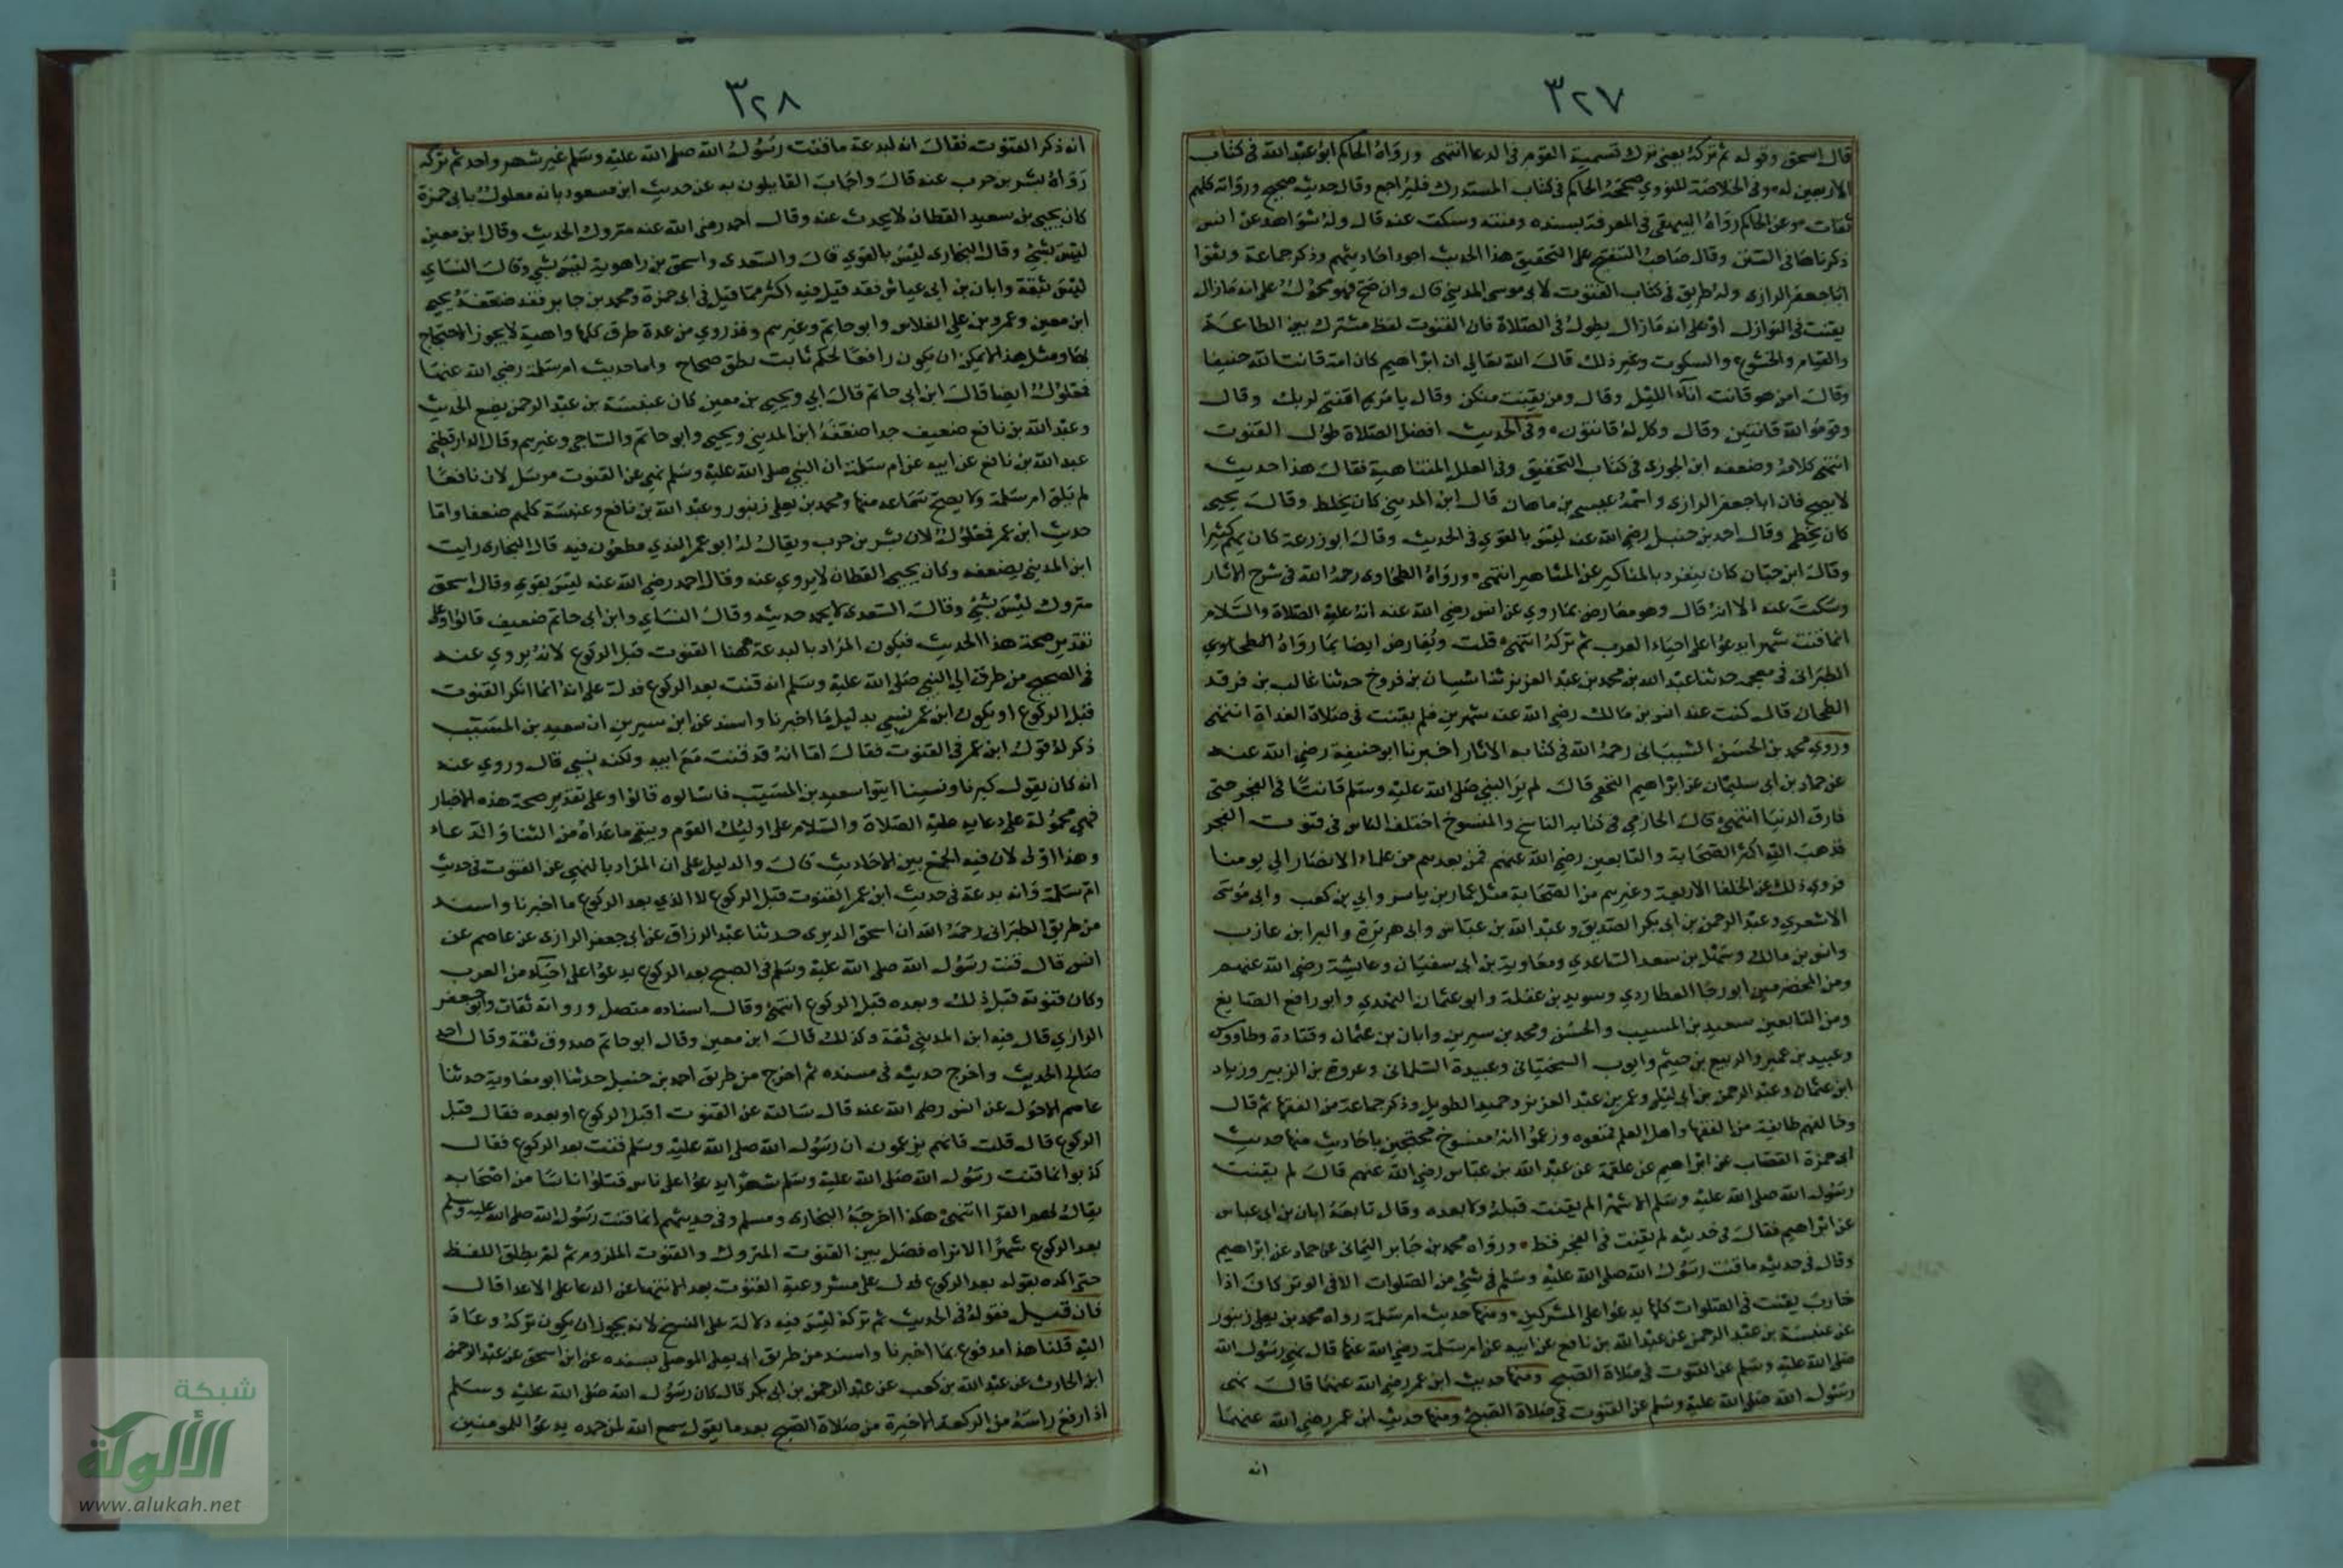 ٣٢٧
قال اسحق وقوله ثم تركه يعني ترك تسمية القوم في الدعا انتهى ورواه الحاكم ابو عبد الله في كتاب
الاربعين له وفي الخلاصة للنووي صححه الحاكم في كتاب المستدرك فليراجع وقال حديث صحيح ورواته كلهم
ثقات وعن الحاكم رواه البيهقي في المعرفة بسنده ومتنه وسكت عنه قال وله شواهد عن انس
ذكرناها في السنن وقال صاحب التنقيح على التحقيق هذا الحديث اجود احاديثهم وذكر جماعة وثقوا
ابا جعفر الرازي وله طريق في كتاب القنوت لابي موسى المديني قال وان صح فهو محمول على انه مازال
يقنت في النوازل او على انه مازال يطول في الصلاة فان القنوت لفظ مشترك بين الطاعة
والقيام والخشوع والسكوت وغير ذلك قال الله تعالي ان ابراهيم كان امة قانتا لله حنيفا
وقال امن هو قانت اناء الليل وقال ومن يقنت منكن وقال يا مريم اقنتي لربك وقال
وقوموا لله قانتين وقال وكل له قانتون وفي الحديث افضل الصلاة طول القنوت
انتهى كلامه وضعفه ابن الجوزي في كتاب التحقيق وفي العلل المتناهية فقال هذا حديث
لا يصح فان ابا جعفر الرازي واسمه عيسى بن ماهان قال ابن المديني كان يخلط وقال يحيى
كان يخطي وقال احمد بن حنبل رضي الله عنه ليس بالقوي في الحديث وقال ابو زرعة كان يهم كثيرا
وقال ابن حبان كان ينفرد بالمناكير عن المشاهير انتهى ورواه الطحاوي رحمه الله في شرح الاثار
وسكت عنه الا انه قال وهو معارض بما روي عن انس رضي الله عنه انه عليه الصلاة والسلام
انما قنت شهرا يدعوا على احياء العرب ثم تركه انتهى قلت ويعارض ايضا بما رواه الطحاوي
الطبراني في معجمه حدثنا عبد الله بن محمد بن عبد العزيز ثنا شيبان بن فروخ حدثنا غالب بن فرقد
الطحان قال كنت عند انس بن مالك رضي الله عنه شهرين فلم يقنت في صلاة الغداة انتهى
وروي محمد بن الحسن الشيباني رحمه الله في كتابه الاثار اخبرنا ابو حنيفة رضي الله عنه
عن حماد بن ابي سليمان عن ابراهيم النخعي قال لم ير النبي صلى الله عليه وسلم قانتا في الفجر حتى
فارق الدنيا انتهى قال الحازمي في كتابه الناسخ والمنسوخ اختلف الناس في قنوت الفجر
فذهب اليه اكثر الصحابة والتابعين رضي الله عنهم فمن بعدهم من علماء الانصار الي يومنا
فروي ذلك عن الخلفا الاربعة وغيرهم من الصحابة مثل عمار بن ياسر وابي بن كعب وابي موسى
الاشعري وعبد الرحمن بن ابي بكر الصديق وعبد الله بن عباس وابي هريرة والبرا بن عازب
وانس بن مالك وسهل بن سعد الساعدي ومعاوية بن ابي سفيان وعايشة رضي الله عنهم
ومن المخضرمين ابو رجا العطاردي وسويد بن غفلة وابو عثمان النهدي وابو رافع الصايغ
ومن التابعين سعيد بن المسيب والحسن ومحمد بن سيرين وابان بن عثمان وقتادة وطاووس
وعبيد بن عمير والربيع بن خيثم وايوب السختياني وعبيدة السلماني وعروة بن الزبير وزياد
ابن عثمان وعبد الرحمن بن ابي ليلى وعمر بن عبد العزيز وحميد الطويل وذكر جماعة من الفقها ثم قال
وخالفهم طايفة من الفقها واهل العلم فمنعوه وزعموا انه منسوخ محتجين باحاديث منها حديث
ابي حمزة القصاب عن ابراهيم عن علقمة عن عبد الله بن عباس رضي الله عنهم قال لم يقنت
رسول الله صلى الله عليه وسلم الا شهرا لم يقنت قبله ولا بعده وقال تابعه ابان بن ابي عياش
عن ابراهيم فقال في حديثه لم يقنت في الفجر قط ورواه محمد بن جابر اليماني عن حماد عن ابراهيم
وقال في حديثه ما قنت رسول الله صلى الله عليه وسلم في شيء من الصلوات الا في الوتر كان اذا
حارب يقنت في الصلوات كلها يدعوا على المشركين ومنها حديث ام سلمة رواه محمد بن يعلى زنبور
عن عنبسة بن عبد الرحمن عن عبد الله بن نافع عن ابيه عن ام سلمة رضي الله عنها قال نهى رسول الله
صلى الله عليه وسلم عن القنوت في صلاة الصبح ومنها حديث ابن عمر رضي الله عنهما قال نهى
رسول الله صلى الله عليه وسلم عن القنوت في صلاة الصبح ومنها حديث ابن عمر رضي الله عنهما
انه
٣٢٨
انه ذكر القنوت فقال انه لبدعة ما قنت رسول الله صلى الله عليه وسلم غير شهر واحد ثم تركه
رواه بشر بن حرب عنه قال واجاب القايلون به عن حديث ابن مسعود بانه معلول بابي حمزة
كان يحيى بن سعيد القطان لا يحدث عنه وقال احمد رضي الله عنه متروك الحديث وقال ابن معين
ليس بشي وقال البخاري ليس بالقوي قال والسعدي واسحق بن راهوية ليس بشي وقال النساي
ليس بثقة وابان بن ابي عياش فقد قيل فيه اكثر مما قيل في ابي حمزة ومحمد بن جابر فقد ضعفه يحيى
ابن معين وعمرو بن علي الفلاس وابو حاتم وغيرهم وقد روي من عدة طرق كلها واهية لا يجوز الاحتجاج
بها ومثل هذا لا يمكن ان يكون رافعا لحكم ثابت بطرق صحاح واما حديث ام سلمة رضي الله عنها
فمعلول ايضا قال ابن ابي حاتم قال ابي ويحيى بن معين كان عنبسة بن عبد الرحمن يضع الحديث
وعبد الله بن نافع ضعيف جدا ضعفه ابن المديني ويحيى وابو حاتم والساجي وغيرهم وقال الدارقطني
عبد الله بن نافع عن ابيه عن ام سلمة ان النبي صلى الله عليه وسلم نهى عن القنوت مرسل لان نافعا
لم يلق ام سلمة ولا يصح سماعه منها ومحمد بن يعلى زنبور وعبد الله بن نافع وعنبسة كلهم ضعفا واما
حديث ابن عمر فمعلول لان بشر بن حرب ويقال له ابو عمر الندي مطعون فيه قال البخاري رايت
ابن المديني يضعفه وكان يحيى القطان لا يروي عنه وقال احمد رضي الله عنه ليس بقوي وقال اسحق
متروك ليس بشي وقال السعدي لا يحمد حديثه وقال النساي وابن ابي حاتم ضعيف قالوا وعلى
تقدير صحة هذا الحديث فيكون المراد بالبدعة ههنا القنوت قبل الركوع لانه يروي عنه
في الصحيح من طرق الي النبي صلى الله عليه وسلم انه قنت بعد الركوع فدل على انه انما انكر القنوت
قبل الركوع او يكون ابن عمر نسي بدليل ما اخبرنا واسند عن ابن سيرين ان سعيد بن المسيب
ذكر له قول ابن عمر في القنوت فقال اما انه قد قنت مع ابيه ولكنه نسي قال وروي عنه
انه كان يقول كبرنا ونسينا ايتوا سعيد بن المسيب فاسالوه قالوا وعلى تقدير صحة هذه الاخبار
فهي محمولة على دعايه عليه الصلاة والسلام على اوليك القوم ويبقى ما عداه من الثنا والدعاء
وهذا اولى لان فيه الجمع بين الاحاديث قال والدليل على ان المراد بالنهي عن القنوت في حديث
ام سلمة وانه بدعة في حديث ابن عمر القنوت قبل الركوع لا الذي بعد الركوع ما اخبرنا واسند
من طريق الطبراني رحمه الله ان اسحق الدبري حدثنا عبد الرزاق عن ابي جعفر الرازي عن عاصم عن
انس قال قنت رسول الله صلى الله عليه وسلم في الصبح بعد الركوع يدعوا على احياء من العرب
وكان قنوته قبل ذلك وبعده قبل الركوع انتهى وقال اسناده متصل ورواته ثقات وابو جعفر
الرازي قال فيه ابن المديني ثقة وكذلك قال ابن معين وقال ابو حاتم صدوق ثقة وقال احمد
صالح الحديث واخرج حديثه في مسنده ثم اخرج من طريق احمد بن حنبل حدثنا ابو معاوية حدثنا
عاصم الاحول عن انس رضي الله عنه قال سالته عن القنوت اقبل الركوع او بعده فقال قبل
الركوع قال قلت فانهم يزعمون ان رسول الله صلى الله عليه وسلم قنت بعد الركوع فقال
كذبوا انما قنت رسول الله صلى الله عليه وسلم شهرا يدعوا على ناس قتلوا اناسا من اصحابه
يقال لهم القرا انتهى هكذا اخرجه البخاري ومسلم وفي حديثهم انما قنت رسول الله صلى الله عليه وسلم
بعد الركوع شهرا الا تراه فصل بين القنوت المتروك والقنوت الملزوم ثم لم يطلق اللفظ
حتى اكده بقوله بعد الركوع فدل على مشروعية القنوت بعد الانتها عن الدعا على الاعدا قال
فان قيل فقوله في الحديث ثم تركه ليس فيه دلالة على النسخ لانه يجوز ان يكون تركه وعاد
اليه قلنا هذا مدفوع بما اخبرنا واسند من طريق ابي يعلى الموصلي بسنده عن ابن اسحق عن عبد الرحمن
ابن الحارث عن عبد الله بن كعب عن عبد الرحمن بن ابي بكر قال كان رسول الله صلى الله عليه وسلم
اذا رفع راسه من الركعة الاخيرة من صلاة الصبح بعد ما يقول سمع الله لمن حمده يدعوا للمومنين
شبكة
الألوكة
www.alukah.net